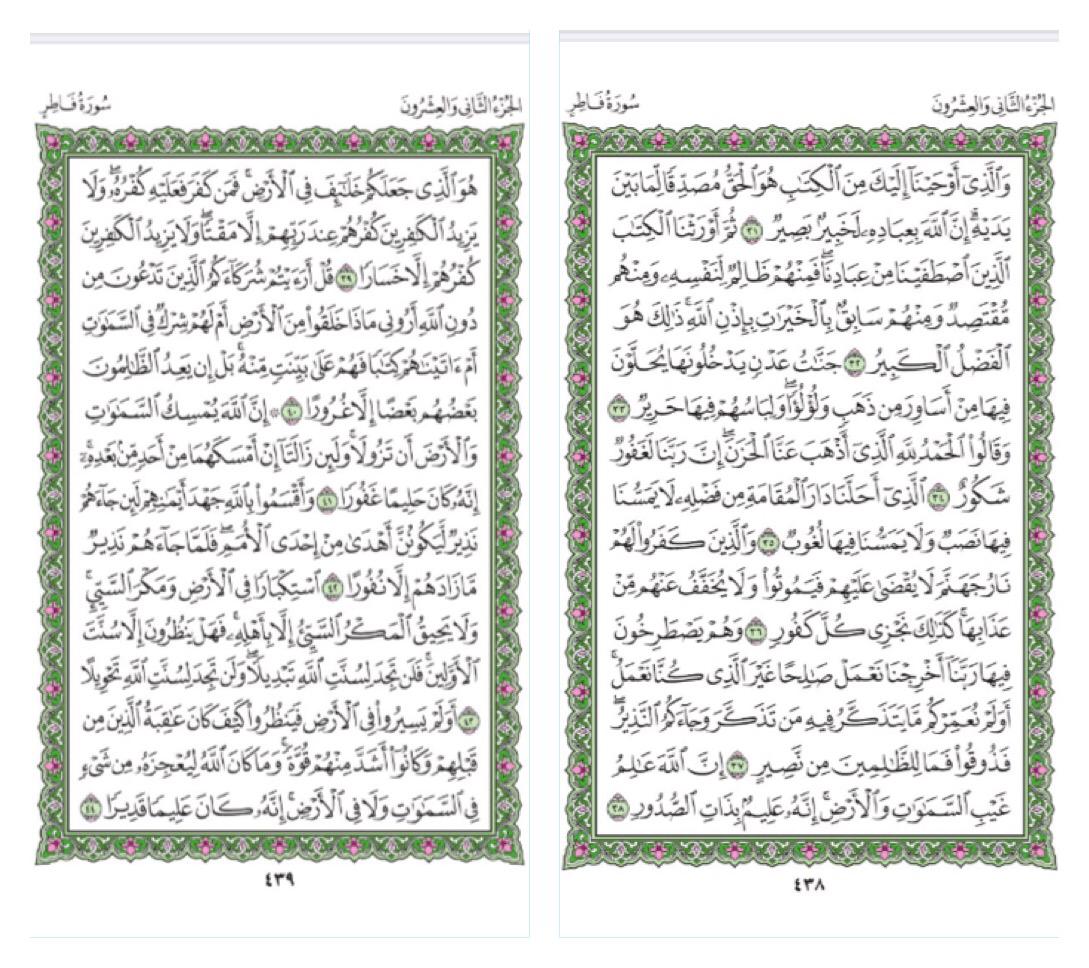 الجُزْءُ الثَّانِي وَالعِشْرُونَ
سُورَةُ فَاطِرٍ
وَٱلَّذِىٓ أَوْحَيْنَآ إِلَيْكَ مِنَ ٱلْكِتَٰبِ هُوَ ٱلْحَقُّ مُصَدِّقًا لِّمَا بَيْنَ
يَدَيْهِۗ إِنَّ ٱللَّهَ بِعِبَادِهِۦ لَخَبِيرٌۢ بَصِيرٌ ٣١ ثُمَّ أَوْرَثْنَا ٱلْكِتَٰبَ
ٱلَّذِينَ ٱصْطَفَيْنَا مِنْ عِبَادِنَاۖ فَمِنْهُمْ ظَالِمٌ لِّنَفْسِهِۦ وَمِنْهُم
مُّقْتَصِدٌ وَمِنْهُمْ سَابِقٌۢ بِٱلْخَيْرَٰتِ بِإِذْنِ ٱللَّهِۚ ذَٰلِكَ هُوَ
ٱلْفَضْلُ ٱلْكَبِيرُ ٣٢ جَنَّٰتُ عَدْنٍ يَدْخُلُونَهَا يُحَلَّوْنَ
فِيهَا مِنْ أَسَاوِرَ مِن ذَهَبٍ وَلُؤْلُؤًاۖ وَلِبَاسُهُمْ فِيهَا حَرِيرٌ ٣٣
وَقَالُوا۟ ٱلْحَمْدُ لِلَّهِ ٱلَّذِىٓ أَذْهَبَ عَنَّا ٱلْحَزَنَۖ إِنَّ رَبَّنَا لَغَفُورٌ
شَكُورٌ ٣٤ ٱلَّذِىٓ أَحَلَّنَا دَارَ ٱلْمُقَامَةِ مِن فَضْلِهِۦ لَا يَمَسُّنَا
فِيهَا نَصَبٌ وَلَا يَمَسُّنَا فِيهَا لُغُوبٌ ٣٥ وَٱلَّذِينَ كَفَرُوا۟ لَهُمْ
نَارُ جَهَنَّمَ لَا يُقْضَىٰ عَلَيْهِمْ فَيَمُوتُوا۟ وَلَا يُخَفَّفُ عَنْهُم مِّنْ
عَذَابِهَاۚ كَذَٰلِكَ نَجْزِى كُلَّ كَفُورٍ ٣٦ وَهُمْ يَصْطَرِخُونَ
فِيهَا رَبَّنَآ أَخْرِجْنَا نَعْمَلْ صَٰلِحًا غَيْرَ ٱلَّذِى كُنَّا نَعْمَلُۚ
أَوَلَمْ نُعَمِّرْكُم مَّا يَتَذَكَّرُ فِيهِ مَن تَذَكَّرَ وَجَآءَكُمُ ٱلنَّذِيرُۖ
فَذُوقُوا۟ فَمَا لِلظَّٰلِمِينَ مِن نَّصِيرٍ ٣٧ إِنَّ ٱللَّهَ عَٰلِمُ
غَيْبِ ٱلسَّمَٰوَٰتِ وَٱلْأَرْضِۚ إِنَّهُۥ عَلِيمٌۢ بِذَاتِ ٱلصُّدُورِ ٣٨
٤٣٨
الجُزْءُ الثَّانِي وَالعِشْرُونَ
سُورَةُ فَاطِرٍ
هُوَ ٱلَّذِى جَعَلَكُمْ خَلَٰٓئِفَ فِى ٱلْأَرْضِۚ فَمَن كَفَرَ فَعَلَيْهِ كُفْرُهُۥۖ وَلَا
يَزِيدُ ٱلْكَٰفِرِينَ كُفْرُهُمْ عِندَ رَبِّهِمْ إِلَّا مَقْتًاۖ وَلَا يَزِيدُ ٱلْكَٰفِرِينَ
كُفْرُهُمْ إِلَّا خَسَارًا ٣٩ قُلْ أَرَءَيْتُمْ شُرَكَآءَكُمُ ٱلَّذِينَ تَدْعُونَ مِن
دُونِ ٱللَّهِ أَرُونِى مَاذَا خَلَقُوا۟ مِنَ ٱلْأَرْضِ أَمْ لَهُمْ شِرْكٌ فِى ٱلسَّمَٰوَٰتِ
أَمْ ءَاتَيْنَٰهُمْ كِتَٰبًا فَهُمْ عَلَىٰ بَيِّنَتٍ مِّنْهُۚ بَلْ إِن يَعِدُ ٱلظَّٰلِمُونَ
بَعْضُهُم بَعْضًا إِلَّا غُرُورًا ٤٠ ۞ إِنَّ ٱللَّهَ يُمْسِكُ ٱلسَّمَٰوَٰتِ
وَٱلْأَرْضَ أَن تَزُولَاۚ وَلَئِن زَالَتَآ إِنْ أَمْسَكَهُمَا مِنْ أَحَدٍ مِّنۢ بَعْدِهِۦٓۚ
إِنَّهُۥ كَانَ حَلِيمًا غَفُورًا ٤١ وَأَقْسَمُوا۟ بِٱللَّهِ جَهْدَ أَيْمَٰنِهِمْ لَئِن جَآءَهُمْ
نَذِيرٌ لَّيَكُونُنَّ أَهْدَىٰ مِنْ إِحْدَى ٱلْأُمَمِۖ فَلَمَّا جَآءَهُمْ نَذِيرٌ
مَّا زَادَهُمْ إِلَّا نُفُورًا ٤٢ ٱسْتِكْبَارًا فِى ٱلْأَرْضِ وَمَكْرَ ٱلسَّيِّئِۚ
وَلَا يَحِيقُ ٱلْمَكْرُ ٱلسَّيِّئُ إِلَّا بِأَهْلِهِۦۚ فَهَلْ يَنظُرُونَ إِلَّا سُنَّتَ
ٱلْأَوَّلِينَۚ فَلَن تَجِدَ لِسُنَّتِ ٱللَّهِ تَبْدِيلًاۖ وَلَن تَجِدَ لِسُنَّتِ ٱللَّهِ تَحْوِيلًا
٤٣ أَوَلَمْ يَسِيرُوا۟ فِى ٱلْأَرْضِ فَيَنظُرُوا۟ كَيْفَ كَانَ عَٰقِبَةُ ٱلَّذِينَ مِن
قَبْلِهِمْ وَكَانُوٓا۟ أَشَدَّ مِنْهُمْ قُوَّةًۚ وَمَا كَانَ ٱللَّهُ لِيُعْجِزَهُۥ مِن شَىْءٍ
فِى ٱلسَّمَٰوَٰتِ وَلَا فِى ٱلْأَرْضِۚ إِنَّهُۥ كَانَ عَلِيمًا قَدِيرًا ٤٤
٤٣٩